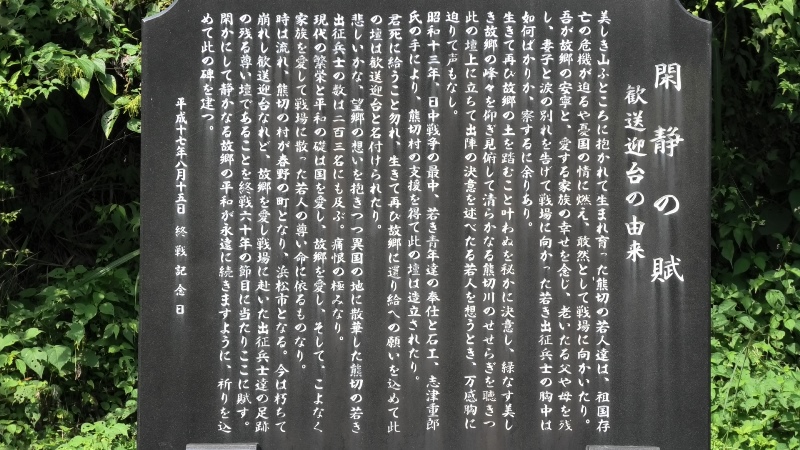 閑静の賦
歓送迎台の由来
美しき山ふところに抱かれて生まれ育った熊切の若人達は、祖国存
亡の危機が迫るや憂国の情に燃え、敢然として戦場に向かいたり。
吾が故郷の安寧と、愛する家族の幸せを念じ、老いたる父や母を残
し、妻子と涙の別れを告げて戦場に向かった若き出征兵士の胸中は
如何ばかりか、察するに余りあり。
生きて再び故郷の土を踏むこと叶わぬを秘かに決意し、緑なす美し
き故郷の峰々を仰ぎ見俯して清らかなる熊切川のせせらぎを聴きつ
此の壇上に立ちて出陣の決意を述べたる若人を想うとき、万感胸に
迫りて声もなし。
昭和十三年、日中戦争の最中、若き青年達の奉仕と石工、志津重郎
氏の手により、熊切村の支援を得て此の壇は造立されたり。
君死に給うこと勿れ、生きて再び故郷に還り給への願いを込めて此
の壇は歓送迎台と名付けられたり。
悲しいかな、望郷の想いを抱きつつ異国の地に散華した熊切の若き
出征兵士の数は二百三名にも及ぶ。痛恨の極みなり。
現代の繁栄と平和の礎は国を愛し、故郷を愛し、そして、こよなく
家族を愛して戦場に散った若人の尊い命に依るものなり。
時は流れ、熊切の村が春野の町となり、浜松市となる。今は朽ちて
崩れし歓送迎台なれど、故郷を愛し戦場に赴いた出征兵士達の足跡
の残る尊い壇であることを終戦六十年の節目に当たりここに賦す。
閑かにして静かなる故郷の平和が永遠に続きますように、祈りを込
めて此の碑を建つ。
平成十七年八月十五日 終戦記念日